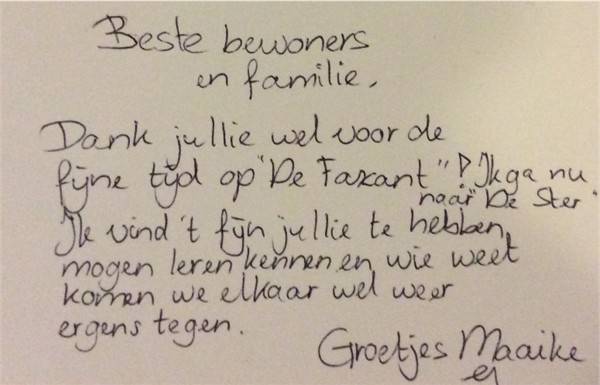 Beste bewoners
en familie,
Dank jullie wel voor de
fijne tijd op "De Fazant"! Ik ga nu
naar "De Ster".
Ik vind 't fijn jullie te hebben
mogen leren kennen en wie weet
komen we elkaar wel weer
ergens tegen.
Groetjes Maaike